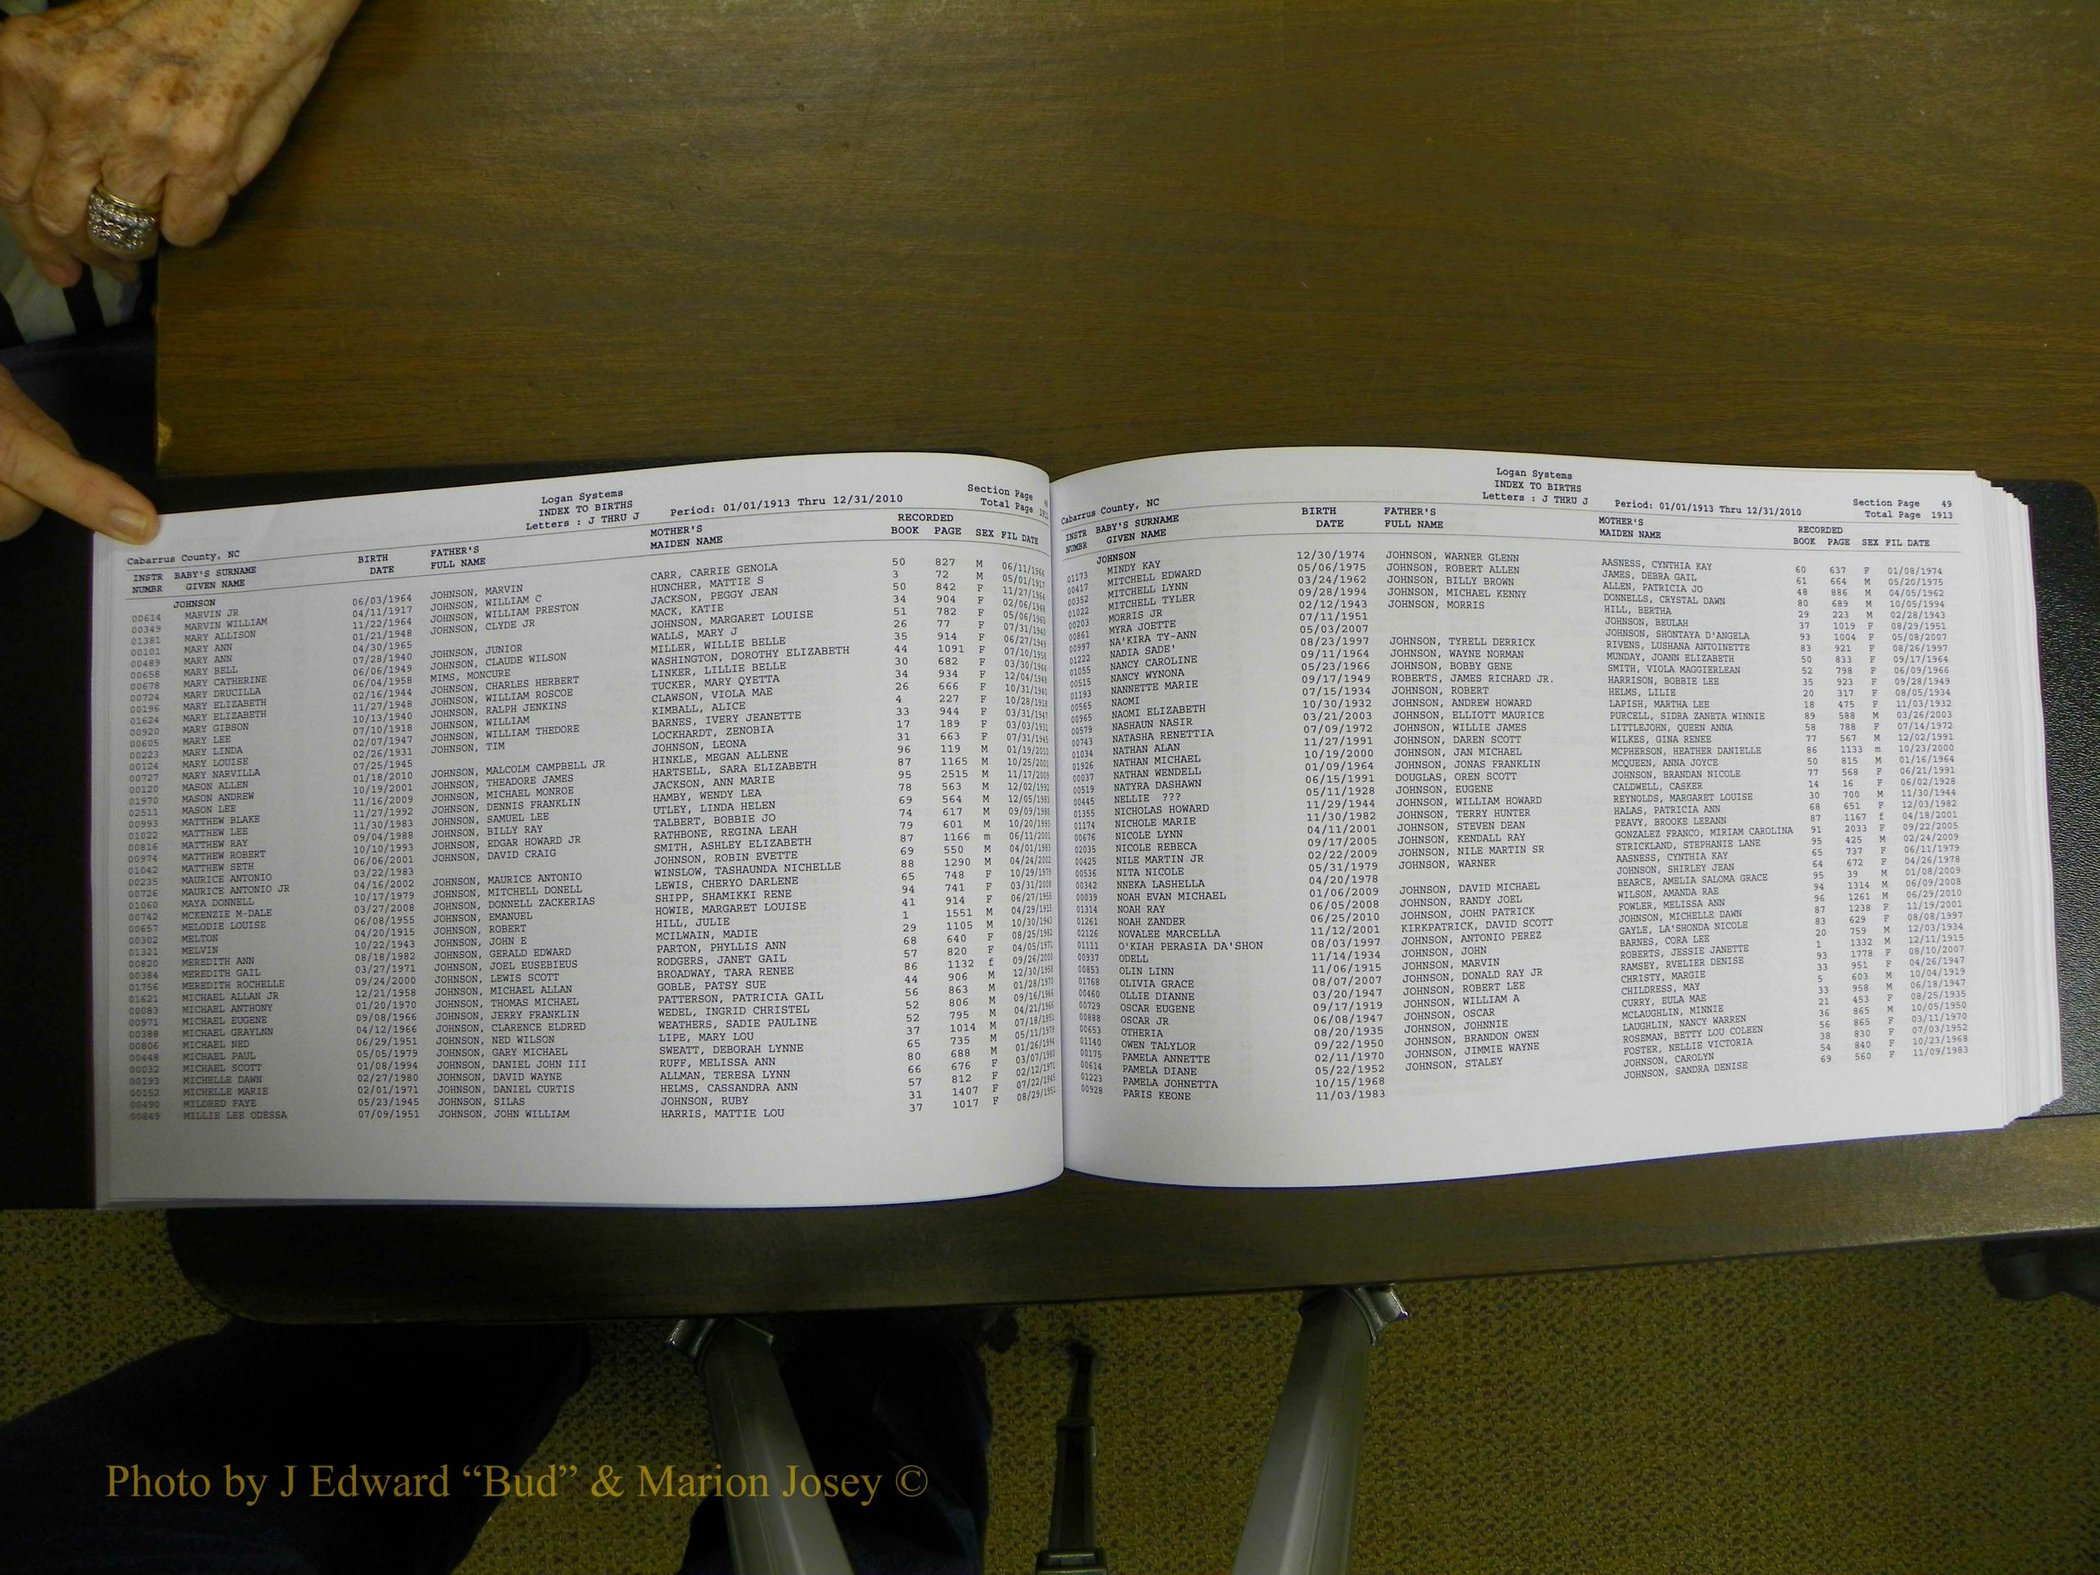 Logan Systems
INDEX TO BIRTHS
Letters : J THRU J Period: 01/01/1913 Thru 12/31/2010
Section Page
Total Page
Cabarrus County, NC
INSTR NUMBR BABY'S SURNAME GIVEN NAME BIRTH DATE FATHER'S FULL NAME MOTHER'S MAIDEN NAME RECORDED BOOK PAGE SEX FIL DATE
JOHNSON
00614 MARVIN JR 06/03/1964 JOHNSON, MARVIN CARR, CARRIE GENOLA 50 827 M 06/11/1964
00349 MARVIN WILLIAM 04/11/1917 JOHNSON, WILLIAM C HUNCHER, MATTIE S 3 72 M 05/01/1917
01381 MARY ALLISON 11/22/1964 JOHNSON, WILLIAM PRESTON JACKSON, PEGGY JEAN 50 842 F 11/27/1964
00101 MARY ANN 01/21/1948 JOHNSON, CLYDE JR MACK, KATIE 34 904 F 02/06/1948
00489 MARY ANN 04/30/1965 JOHNSON, MARGARET LOUISE 51 782 F 05/06/1965
00658 MARY BELL 07/28/1940 JOHNSON, JUNIOR WALLS, MARY J 26 77 F 07/31/1940
00678 MARY CATHERINE 06/06/1949 JOHNSON, CLAUDE WILSON MILLER, WILLIE BELLE 35 914 F 06/27/1949
00724 MARY DRUCILLA 06/04/1958 MIMS, MONCURE WASHINGTON, DOROTHY ELIZABETH 44 1091 F 07/10/1958
00196 MARY ELIZABETH 02/16/1944 JOHNSON, CHARLES HERBERT LINKER, LILLIE BELLE 30 682 F 03/30/1944
01624 MARY ELIZABETH 11/27/1948 JOHNSON, WILLIAM ROSCOE TUCKER, MARY QYETTA 34 934 F 12/04/1948
00920 MARY GIBSON 10/13/1940 JOHNSON, RALPH JENKINS CLAWSON, VIOLA MAE 26 666 F 10/31/1940
00605 MARY LEE 07/10/1918 JOHNSON, WILLIAM KIMBALL, ALICE 4 227 F 10/28/1918
00223 MARY LINDA 02/07/1947 JOHNSON, WILLIAM THEDORE BARNES, IVERY JEANETTE 33 944 F 03/31/1947
00124 MARY LOUISE 02/26/1931 JOHNSON, TIM LOCKHARDT, ZENOBIA 17 189 F 03/03/1931
00727 MARY NARVILLA 07/25/1945 JOHNSON, LEONA 31 663 F 07/31/1945
00120 MASON ALLEN 01/18/2010 JOHNSON, MALCOLM CAMPBELL JR HINKLE, MEGAN ALLENE 96 119 M 01/19/2010
01970 MASON ANDREW 10/19/2001 JOHNSON, THEADORE JAMES HARTSELL, SARA ELIZABETH 87 1165 M 10/25/2001
02511 MASON LEE 11/16/2009 JOHNSON, MICHAEL MONROE JACKSON, ANN MARIE 95 2515 M 11/17/2009
00993 MATTHEW BLAKE 11/27/1992 JOHNSON, DENNIS FRANKLIN HAMBY, WENDY LEA 78 563 M 12/02/1992
01022 MATTHEW LEE 11/30/1983 JOHNSON, SAMUEL LEE UTLEY, LINDA HELEN 69 564 M 12/05/1983
00816 MATTHEW RAY 09/04/1988 JOHNSON, BILLY RAY TALBERT, BOBBIE JO 74 617 M 09/09/1988
00974 MATTHEW ROBERT 10/10/1993 JOHNSON, EDGAR HOWARD JR RATHBONE, REGINA LEAH 79 601 M 10/20/1993
01042 MATTHEW SETH 06/06/2001 JOHNSON, DAVID CRAIG SMITH, ASHLEY ELIZABETH 87 1166 m 06/11/2001
00235 MAURICE ANTONIO 03/22/1983 JOHNSON, ROBIN EVETTE 69 550 M 04/01/1983
00726 MAURICE ANTONIO JR 04/16/2002 JOHNSON, MAURICE ANTONIO WINSLOW, TASHAUNDA NICHELLE 88 1290 M 04/24/2002
01060 MAYA DONNELL 10/17/1979 JOHNSON, MITCHELL DONELL LEWIS, CHERYO DARLENE 65 748 F 10/29/1979
00742 MCKENZIE M-DALE 03/27/2008 JOHNSON, DONNELL ZACKERIAS SHIPP, SHAMIKKI RENE 94 741 F 03/31/2008
00657 MELODIE LOUISE 06/08/1955 JOHNSON, EMANUEL HOWIE, MARGARET LOUISE 41 914 F 06/27/1955
00302 MELTON 04/20/1915 JOHNSON, ROBERT HILL, JULIE 1 1551 M 04/29/1915
01321 MELVIN 10/22/1943 JOHNSON, JOHN E MCILWAIN, MADIE 29 1105 M 10/30/1943
00820 MEREDITH ANN 08/18/1982 JOHNSON, GERALD EDWARD PARTON, PHYLLIS ANN 68 640 F 08/25/1982
00384 MEREDITH GAIL 03/27/1971 JOHNSON, JOEL EUSEBIEUS RODGERS, JANET GAIL 57 820 F 04/05/1971
01756 MEREDITH ROCHELLE 09/24/2000 JOHNSON, LEWIS SCOTT BROADWAY, TARA RENEE 86 1132 f 09/26/2000
01621 MICHAEL ALLAN JR 12/21/1958 JOHNSON, MICHAEL ALLAN GOBLE, PATSY SUE 44 906 M 12/30/1958
00083 MICHAEL ANTHONY 01/20/1970 JOHNSON, THOMAS MICHAEL PATTERSON, PATRICIA GAIL 56 863 M 01/28/1970
00971 MICHAEL EUGENE 09/08/1966 JOHNSON, JERRY FRANKLIN WEDEL, INGRID CHRISTEL 52 806 M 09/16/1966
00388 MICHAEL GRAYLNN 04/12/1966 JOHNSON, CLARENCE ELDRED WEATHERS, SADIE PAULINE 52 795 M 04/21/1966
00806 MICHAEL NED 06/29/1951 JOHNSON, NED WILSON LIPE, MARY LOU 37 1014 M 07/18/1951
00448 MICHAEL PAUL 05/05/1979 JOHNSON, GARY MICHAEL SWEATT, DEBORAH LYNNE 65 735 M 05/11/1979
00032 MICHAEL SCOTT 01/08/1994 JOHNSON, DANIEL JOHN III RUFF, MELISSA ANN 80 688 M 01/26/1994
00193 MICHELLE DAWN 02/27/1980 JOHNSON, DAVID WAYNE ALLMAN, TERESA LYNN 66 676 F 03/07/1980
00152 MICHELLE MARIE 02/01/1971 JOHNSON, DANIEL CURTIS HELMS, CASSANDRA ANN 57 812 F 02/12/1971
00490 MILDRED FAYE 05/23/1945 JOHNSON, SILAS JOHNSON, RUBY 31 1407 F 07/22/1945
00849 MILLIE LEE ODESSA 07/09/1951 JOHNSON, JOHN WILLIAM HARRIS, MATTIE LOU 37 1017 F 08/29/1951
Logan Systems
INDEX TO BIRTHS
Letters : J THRU J Period: 01/01/1913 Thru 12/31/2010
Section Page 49
Total Page 1913
Cabarrus County, NC
INSTR NUMBR BABY'S SURNAME GIVEN NAME BIRTH DATE FATHER'S FULL NAME MOTHER'S MAIDEN NAME RECORDED BOOK PAGE SEX FIL DATE
JOHNSON
01173 MINDY KAY 12/30/1974 JOHNSON, WARNER GLENN AASNESS, CYNTHIA KAY 60 637 F 01/08/1974
00417 MITCHELL EDWARD 05/06/1975 JOHNSON, ROBERT ALLEN JAMES, DEBRA GAIL 61 664 M 05/20/1975
00352 MITCHELL LYNN 03/24/1962 JOHNSON, BILLY BROWN ALLEN, PATRICIA JO 48 886 M 04/05/1962
01022 MITCHELL TYLER 09/28/1994 JOHNSON, MICHAEL KENNY DONNELLS, CRYSTAL DAWN 80 689 M 10/05/1994
00203 MORRIS JR 02/12/1943 JOHNSON, MORRIS HILL, BERTHA 29 223 M 02/28/1943
00861 MYRA JOETTE 07/11/1951 JOHNSON, BEULAH 37 1019 F 08/29/1951
00997 NA'KIRA TY-ANN 05/03/2007 JOHNSON, SHONTAYA D'ANGELA 93 1004 F 05/08/2007
01222 NADIA SADE' 08/23/1997 JOHNSON, TYRELL DERRICK RIVENS, LUSHANA ANTOINETTE 83 921 F 08/26/1997
01055 NANCY CAROLINE 09/11/1964 JOHNSON, WAYNE NORMAN MUNDAY, JOANN ELIZABETH 50 833 F 09/17/1964
00515 NANCY WYNONA 05/23/1966 JOHNSON, BOBBY GENE SMITH, VIOLA MAGGIERLEAN 52 798 F 06/09/1966
01193 NANNETTE MARIE 09/17/1949 ROBERTS, JAMES RICHARD JR. HARRISON, BOBBIE LEE 35 923 F 09/28/1949
00565 NAOMI 07/15/1934 JOHNSON, ROBERT HELMS, LILIE 20 317 F 08/05/1934
00965 NAOMI ELIZABETH 10/30/1932 JOHNSON, ANDREW HOWARD LAPISH, MARTHA LEE 18 475 F 11/03/1932
00579 NASHAUN NASIR 03/21/2003 JOHNSON, ELLIOTT MAURICE PURCELL, SIDRA ZANETA WINNIE 89 588 M 03/26/2003
00743 NATASHA RENETTIA 07/09/1972 JOHNSON, WILLIE JAMES LITTLEJOHN, QUEEN ANNA 58 788 F 07/14/1972
01034 NATHAN ALAN 11/27/1991 JOHNSON, DAREN SCOTT WILKES, GINA RENEE 77 567 M 12/02/1991
01926 NATHAN MICHAEL 10/19/2000 JOHNSON, JAN MICHAEL MCPHERSON, HEATHER DANIELLE 86 1133 m 10/23/2000
00037 NATHAN WENDELL 01/09/1964 JOHNSON, JONAS FRANKLIN MCQUEEN, ANNA JOYCE 50 815 M 01/16/1964
00519 NATYRA DASHAWN 06/15/1991 DOUGLAS, OREN SCOTT JOHNSON, BRANDAN NICOLE 77 568 F 06/21/1991
00445 NELLIE ??? 05/11/1928 JOHNSON, EUGENE CALDWELL, CASKER 14 16 F 06/02/1928
01355 NICHOLAS HOWARD 11/29/1944 JOHNSON, WILLIAM HOWARD REYNOLDS, MARGARET LOUISE 30 700 M 11/30/1944
01174 NICHOLE MARIE 11/30/1982 JOHNSON, TERRY HUNTER HALAS, PATRICIA ANN 68 651 F 12/03/1982
00676 NICOLE LYNN 04/11/2001 JOHNSON, STEVEN DEAN PEAVY, BROOKE LEEANN 87 1167 f 04/18/2001
02035 NICOLE REBECA 09/17/2005 JOHNSON, KENDALL RAY GONZALEZ FRANCO, MIRIAM CAROLINA 91 2033 F 09/22/2005
00425 NILE MARTIN JR 02/22/2009 JOHNSON, NILE MARTIN SR STRICKLAND, STEPHANIE LANE 95 425 M 02/24/2009
00536 NITA NICOLE 05/31/1979 JOHNSON, WARNER AASNESS, CYNTHIA KAY 65 737 F 06/11/1979
00342 NNEKA LASHELLA 04/20/1978 JOHNSON, SHIRLEY JEAN 64 672 F 04/26/1978
00039 NOAH EVAN MICHAEL 01/06/2009 JOHNSON, DAVID MICHAEL BEARCE, AMELIA SALOMA GRACE 95 39 M 01/08/2009
01314 NOAH RAY 06/05/2008 JOHNSON, RANDY JOEL WILSON, AMANDA RAE 94 1314 M 06/09/2008
01261 NOAH ZANDER 06/25/2010 JOHNSON, JOHN PATRICK FOWLER, MELISSA ANN 96 1261 M 06/29/2010
02126 NOVALEE MARCELLA 11/12/2001 KIRKPATRICK, DAVID SCOTT JOHNSON, MICHELLE DAWN 87 1238 F 11/19/2001
01111 O'KIAH PERASIA DA'SHON 08/03/1997 JOHNSON, ANTONIO PEREZ GAYLE, LA'SHONDA NICOLE 83 629 F 08/08/1997
00937 ODELL 11/14/1934 JOHNSON, JOHN BARNES, CORA LEE 20 759 M 12/03/1934
00853 OLIN LINN 11/06/1915 JOHNSON, MARVIN ROBERTS, JESSIE JANETTE 1 1332 M 12/11/1915
01768 OLIVIA GRACE 08/07/2007 JOHNSON, DONALD RAY JR RAMSEY, RVELIER DENISE 93 1778 F 08/10/2007
00460 OLLIE DIANNE 03/20/1947 JOHNSON, ROBERT LEE CHRISTY, MARGIE 33 951 F 04/26/1947
00729 OSCAR EUGENE 09/17/1919 JOHNSON, WILLIAM A CHILDRESS, MAY 5 603 M 10/04/1919
00888 OSCAR JR 06/08/1947 JOHNSON, OSCAR CURRY, EULA MAE 33 958 M 06/18/1947
00653 OTHERIA 08/20/1935 JOHNSON, JOHNNIE MCLAUGHLIN, MINNIE 21 453 F 08/25/1935
01140 OWEN TALYLOR 09/22/1950 JOHNSON, BRANDON OWEN LAUGHLIN, NANCY WARREN 36 865 M 10/05/1950
00175 PAMELA ANNETTE 02/11/1970 JOHNSON, JIMMIE WAYNE ROSEMAN, BETTY LOU COLEEN 56 865 F 03/11/1970
00614 PAMELA DIANE 05/22/1952 JOHNSON, STALEY FOSTER, NELLIE VICTORIA 38 830 F 07/03/1952
01223 PAMELA JOHNETTA 10/15/1968 JOHNSON, CAROLYN 54 840 F 10/23/1968
00928 PARIS KEONE 11/03/1983 JOHNSON, SANDRA DENISE 69 560 F 11/09/1983
Photo by J Edward “Bud” & Marion Josey ©